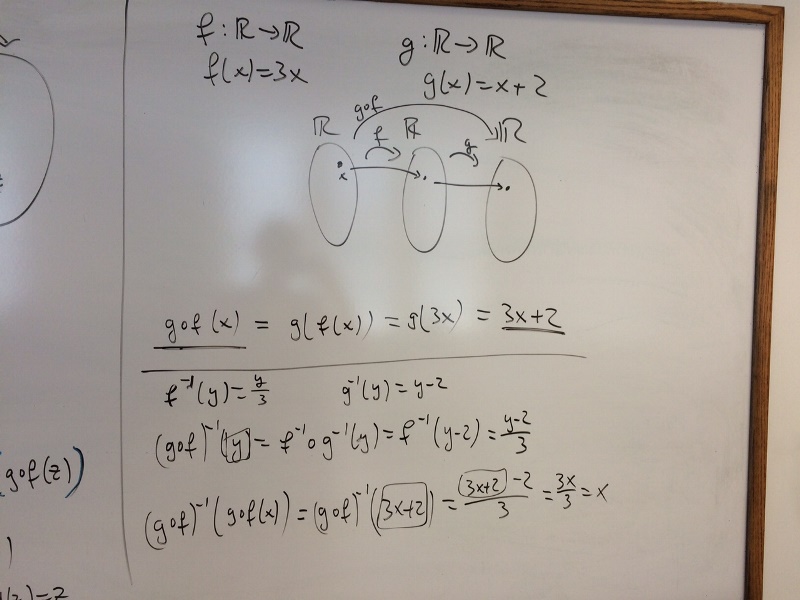 f : ℝ → ℝ
f(x) = 3x
g : ℝ → ℝ
g(x) = x + 2
g∘f
ℝ f ℝ g ℝ
x
g∘f (x) = g(f(x)) = g(3x) = 3x+2
f⁻¹(y) = y/3 g⁻¹(y) = y-2
(g∘f)⁻¹(y) = f⁻¹∘g⁻¹(y) = f⁻¹(y-2) = (y-2)/3
(g∘f)⁻¹(g∘f(x)) = (g∘f)⁻¹(3x+2) = ((3x+2)-2)/3 = 3x/3 = x
(g∘f(z))
)